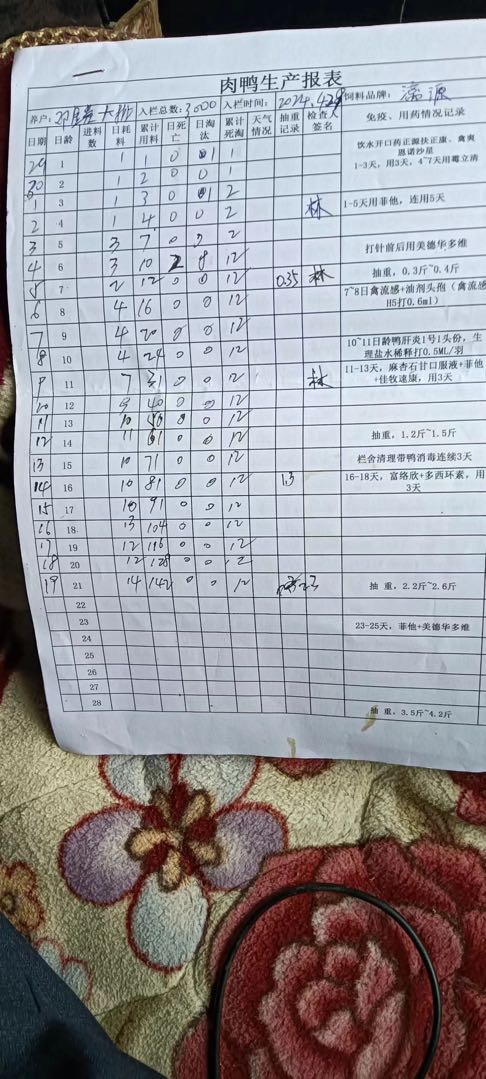 肉鸭生产报表
养户: 入栏总数:3000 入栏时间: 2024.4.28 饲料品牌:
日期 日龄 进料数 日耗料 累计用料 日死亡 日淘汰 累计死淘 天气情况 抽重记录 检查人签名 免疫、用药情况记录
29 1 1 1 0 1 1 饮水开口药正源扶正康、禽爽恩诺沙星
30 2 1 2 0 0 1 1-3天,用3天,4~7天用霉立清
1 3 1 3 0 1 2 林 1-5天用菲他,连用5天
2 4 1 4 0 0 2
3 5 3 7 0 0 2 打针前后用美德华多维
4 6 3 10 2 8 12
5 7 2 12 0 0 12 0.35 林 抽重,0.3斤~0.4斤
6 8 4 16 0 0 12 7~8日禽流感+油剂头孢(禽流感H5打0.6ml)
7 9 4 20 0 0 12
8 10 4 24 0 0 12 10~11日龄鸭肝炎1号1头份,生理盐水稀释打0.5ML/羽
9 11 7 31 0 0 12 林 11-13天,麻杏石甘口服液+菲他+佳牧速康,用3天
10 12 9 40 0 0 12
11 13 10 50 0 0 12
12 14 11 61 0 0 12 抽重,1.2斤~1.5斤
13 15 10 71 0 0 12 栏舍清理带鸭消毒连续3天
14 16 10 81 0 0 12 1.3 16-18天,富络欣+多西环素,用3天
15 17 10 91 0 0 12
16 18 13 104 0 0 12
17 19 12 116 0 0 12
18 20 12 128 0 0 12
19 21 14 142 0 0 12 2.3 抽重,2.2斤~2.6斤
22
23 23-25天,菲他+美德华多维
24
25
26
27
28 抽重,3.5斤~4.2斤